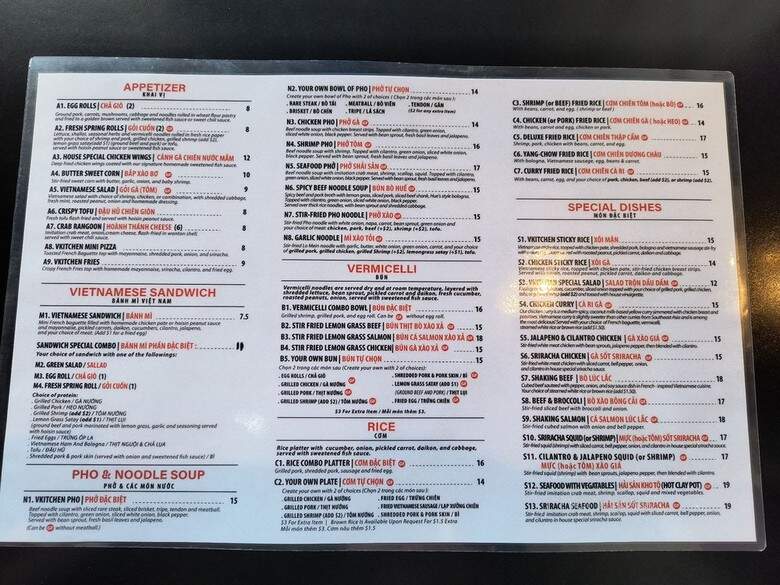 APPETIZER
KHAI VỊ
A1. EGG ROLLS | CHẢ GIÒ (2) 8
Ground pork, carrots, mushrooms, cabbage and noodles rolled in wheat flour pastry
and fried to a golden brown served with sweetened fish sauce or sweet chili sauce.
A2. FRESH SPRING ROLLS | GỎI CUỐN (2) GF 8
Lettuce, shallot, seasonal herbs and vermicelli noodles salad in fresh rice paper
with your choice of shrimp and pork, grilled chicken, grilled shrimp (+$2),
lemon grass satay($1) (ground beef and pork) or tofu,
served with hoisin peanut sauce or sweetened fish sauce.
A3. HOUSE SPECIAL CHICKEN WINGS | CÁNH GÀ CHIÊN NƯỚC MẮM 12
Deep-fried chicken wings coated with our signature homemade sweetened fish sauce.
A4. BUTTER SWEET CORN | BẮP XÀO BƠ GF 10
Stir fried sweet corn with butter, garlic, onion, and baby shrimp.
A5. VIETNAMESE SALAD | GỎI GÀ (TÔM) GF 9
Vietnamese salad with choice of shrimp, chicken, or combination, with shredded cabbage,
fresh mint, roasted peanut, onion and homemade dressing.
A6. CRISPY TOFU | ĐẬU HŨ CHIÊN GIÒN 8
Fresh tofu flash fried and served with hoisin peanut sauce.
A7. CRAB RANGOON | HOÀNH THÁNH CHEESE (6) 8
Imitation crab meat, onion, cream cheese, flash fried in wonton shell,
served with sweet chili sauce.
A8. VKITCHEN MINI PIZZA 8
Toasted French Baguette top with mayonnaise, shredded pork, onion, and sriracha.
A9. VKITCHEN FRIES 9
Crispy French Fries top with homemade mayonnaise, sriracha, cilantro, and fried egg.
VIETNAMESE SANDWICH
BÁNH MÌ VIỆT NAM
M1. VIETNAMESE SANDWICH | BÁNH MÌ 7.5
Mini French baguette filled with homemade chicken pate or hoisin peanut sauce
and mayonnaise, pickled carrots, daikon, cucumbers, cilantro, jalapeno,
and your choice of meat. (Add $1 for a fried egg)
SANDWICH SPECIAL COMBO | BÁNH MÌ PHẦN ĐẶC BIỆT :
Your choice of sandwich with one of the followings:
M2. GREEN SALAD / SALLAD
M3. EGG ROLL / CHẢ GIÒ (1)
M4. FRESH SPRING ROLL / GỎI CUỐN (1)
Choice of protein:
. Grilled Chicken / GÀ NƯỚNG
. Grilled Pork / HEO NƯỚNG
. Grilled Shrimp (add $2) / TÔM NƯỚNG
. Lemon Grass Satay (add $1) / THỊT LỤI
(ground beef and pork marinated with lemon grass, garlic and seasoning
with hoisin sauce)
. Fried Eggs / TRỨNG ỐP LA
. Vietnamese Ham And Bologna / THỊT NGUỘI & CHẢ LỤA
. Tofu / ĐẬU HŨ
. Shredded pork & pork skin (served with onion and sweetened fish sauce) / BÌ
PHO & NOODLE SOUP
PHỞ & CÁC MÓN NƯỚC
N1. VKITCHEN PHO | PHỞ ĐẶC BIỆT 15
Beef noodle soup with sliced rare steak, sliced brisket, tripe, tendon and meatball.
Topped with cilantro, green onion, sliced white onion, black pepper.
Served with bean sprout, fresh basil leaves and jalapeno.
(Can be GF without meatball.)
N2. YOUR OWN BOWL OF PHO | PHỞ TỰ CHỌN 14
Create your own bowl of Pho with 2 of choices ( Chọn 2 trong các món sau ):
. RARE STEAK / BÒ TÁI . MEATBALL / BÒ VIÊN . TENDON / GÂN
. BRISKET / BÒ CHÍN . TRIPE / LÁ SÁCH ($2 for any extra item)
N3. CHICKEN PHO | PHỞ GÀ GF 14
Beef noodle soup with chicken breast strips. Topped with cilantro, green onion,
sliced white onion, black pepper. Served with bean sprout, fresh basil leaves and jalapeno.
N4. SHRIMP PHO | PHỞ TÔM GF 16
Beef noodle soup with shrimp. Topped with cilantro, green onion, sliced white onion,
black pepper. Served with bean sprout, fresh basil leaves, and jalapeno.
N5. SEAFOOD PHỞ | PHỞ HẢI SẢN GF 17
Beef noodle soup with imitation crab meat, shrimp, scallop, squid. Topped with cilantro,
green onion, sliced white onion, black pepper. Served with bean sprout, fresh basil leaves, and jalapeno.
N6. SPICY BEEF NOODLE SOUP | BÚN BÒ HUẾ GF 15
Spicy beef and pork broth with lemon grass, sliced pork, sliced beef shank, Hue's style bologna.
Topped with cilantro, green onion, sliced white onion, black pepper.
Served over thick rice noodles, and shredded cabbage.
N7. STIR-FRIED PHO NOODLE | PHỞ XÀO GF 15
Stir-fried Pho noodle with white onion, napa, carrot, bean sprout, green onion and
your choice of meat: chicken, pork, beef (+$2), shrimp (+$2), tofu.
N8. GARLIC NOODLE | MÌ XÀO TỎI 15
Stir fried Lo Mein noodle with garlic, butter, white onion, green onion, carrot, and your
choice of grilled pork, grilled chicken, grilled Shrimp (+$2), lemongrass satay (+$1), tofu.
VERMICELLI
BÚN
Vermicelli noodles are served dry and at room temperature, layered with
shredded lettuce, bean sprout, pickled carrot and daikon, fresh cucumber,
roasted peanuts, onion, and served with sweetened fish sauce.
B1. VERMICELLI COMBO BOWL | BÚN ĐẶC BIỆT 16
Grilled shrimp, grilled pork, and egg roll. Can be GF without egg roll.
B2. STIR FRIED LEMON GRASS BEEF | BÚN THỊT BÒ XÀO XẢ GF 17
B3. STIR FRIED LEMON GRASS SALMON | BÚN CÁ SALMON XÀO XẢ GF 18
B4. STIR FRIED LEMON GRASS CHICKEN | BÚN GÀ XÀO XẢ GF 15
B5. YOUR OWN BUN | BÚN TỰ CHỌN 15
Create your own Bun / Bún tự chọn món sau (Create with 2 of choices):
. EGG ROLLS / CHẢ GIÒ . SHREDDED PORK & PORK SKIN / BÌ GF
. GRILLED CHICKEN / GÀ NƯỚNG GF . LEMON GRASS SATAY (ADD $1) GF
. GRILLED PORK / THỊT NƯỚNG GF (GROUND BEEF AND PORK) / THỊT LỤI
. GRILLED SHRIMP (ADD $2) / TÔM NƯỚNG GF . FRIED EGG / TRỨNG CHIÊN GF
$3 For Extra Item / Mỗi món thêm $3.
RICE
CƠM
Rice platter with cucumber, onion, pickled carrot, daikon, and cabbage,
served with sweetened fish sauce.
C1. RICE COMBO PLATTER | CƠM ĐẶC BIỆT GF 16
Grilled pork, shredded pork, sausage and fried egg.
C2. YOUR OWN PLATE | CƠM TỰ CHỌN GF 14
Create your own with 2 of choices (Chọn 2 trong các món sau):
. GRILLED CHICKEN / GÀ NƯỚNG . FRIED EGG / TRỨNG CHIÊN
. GRILLED PORK / THỊT NƯỚNG . FRIED VIETNAMESE SAUSAGE / LẠP XƯỞNG CHIÊN
. GRILLED SHRIMP (ADD $2) / TÔM NƯỚNG . SHREDDED PORK & PORK SKIN / BÌ
$3 For Extra Item | Brown Rice Is Available Upon Request For $1.5 Extra
Mỗi món thêm $3. Cơm nâu $1.5
C3. SHRIMP (or BEEF) FRIED RICE | CƠM CHIÊN TÔM (hoặc BÒ) GF 16
With beans, carrot, and egg. ( shrimp or beef )
C4. CHICKEN (or PORK) FRIED RICE | CƠM CHIÊN GÀ (hoặc HEO) GF 14
With beans, carrot and egg, chicken or pork.
C5. DELUXE FRIED RICE | CƠM CHIÊN THẬP CẨM GF 17
Shrimp, pork, chicken with beans, carrot, and egg.
C6. YANG CHOW FRIED RICE | CƠM CHIÊN DƯƠNG CHÂU 15
With bologna, Vietnamese sausage, egg, beans & carrot.
C7. CURRY FRIED RICE | CƠM CHIÊN CÀ RI GF 15
With beans, carrot, egg, and your choice of pork, chicken, beef (add $2), or shrimp (add $2).
SPECIAL DISHES
MÓN ĐẶC BIỆT
S1. VKITCHEN STICKY RICE | XÔI MẶN 15
Vietnamese sticky rice, topped with chicken pate, shredded pork, bologna and vietnamese sausage stir-fry
with onion. Served with roasted peanut, pickled carrot, daikon and cabbage.
S2. CHICKEN STICKY RICE | XÔI GÀ 14
Vietnamese sticky rice, topped with chicken pate, stir-fried chicken breast strips.
Served with onion, roasted peanut, pickled carrot, daikon and cabbage.
SPECIAL SALAD | SALAD TRỘN DẦU DẤM GF 12
cucumber, sliced meat with your choice of grilled pork, grilled chicken,
tofu, and onion. add grilled shrimp (+$2) and tossed with house vinaigrette.
S4. CHICKEN CURRY | CÀ RI GÀ GF 14
Our signature, creamy & medium-spicy, coconut milk-based yellow curry simmered with chicken breast and
potatoes. Vietnamese curry is slightly sweeter than other curries from Southeast Asia and is among
the most delicious! Served with your choice of French baguette, vermicelli,
steamed white rice or brown rice (add $1.50).
S5. JALAPEÑO & CILANTRO CHICKEN | GÀ XÀO GIÁ GF 14
Stir-fried white meat chicken with bean sprouts, jalapeno pepper, then blended with cilantro.
S6. SRIRACHA CHICKEN | GÀ SỐT SRIRACHA GF 14
Stir-fried white meat chicken with carrot, bell pepper, and onion in special sriracha sauce.
S7. SHAKING BEEF | BÒ LÚC LẮC 18
Cubed beef sauteed with pepper, onion, and soy sauce dish in French - inspired Vietnamese cuisine.
You choice of rice or bread.
S8. BEEF & BROCCOLI | BÒ XÀO BÔNG CẢI 17
Stir-fried sliced beef with broccoli and onion.
S9. SHAKING SALMON | CÁ SALMON LÚC LẮC 18
Stir-fried cubed salmon with onion and bell pepper.
S10. SRIRACHA SQUID (or SHRIMP) | MỰC (hoặc TÔM) SỐT SRIRACHA GF 17
Stir-fried squid (shrimp) with sliced carrot, bell pepper, and onion in house special sriracha sauce.
S11. CILANTRO & JALAPENO SQUID (or SHRIMP) 17
MỰC (hoặc TÔM) XÀO GIÁ
Stir-fried squid (shrimp) with bean sprouts, jalapeno pepper, then blended with cilantro.
S12. SEAFOOD WITH VEGETABLES | HẢI SẢN KHO TỘ (HOT CLAY POT) GF 19
Stir-fried imitation crab meat, shrimp, scallop, squid and mixed vegetables.
S13. SRIRACHA SEAFOOD | HẢI SẢN SỐT SRIRACHA GF 19
Stir-fried imitation crab meat, shrimp, scallop, squid with sliced carrot, bell pepper, and onion,
and cilantro in house special sriracha sauce.